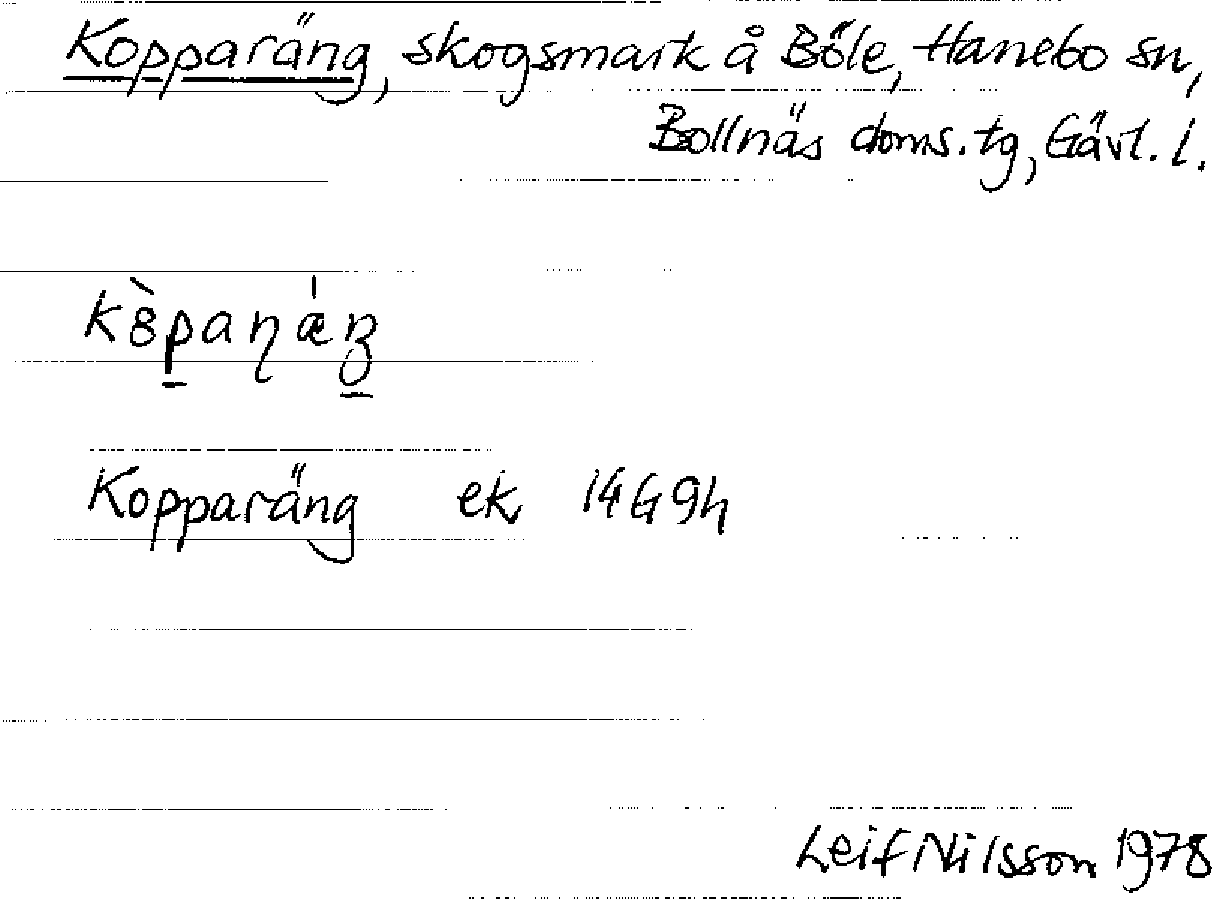 Kopparäng, skogsmark å Böle, Hanebo sn,
Bollnäs doms. tg, Gävl. l.
Kopparäng ek 14G 9h
Leif Nilsson 1978